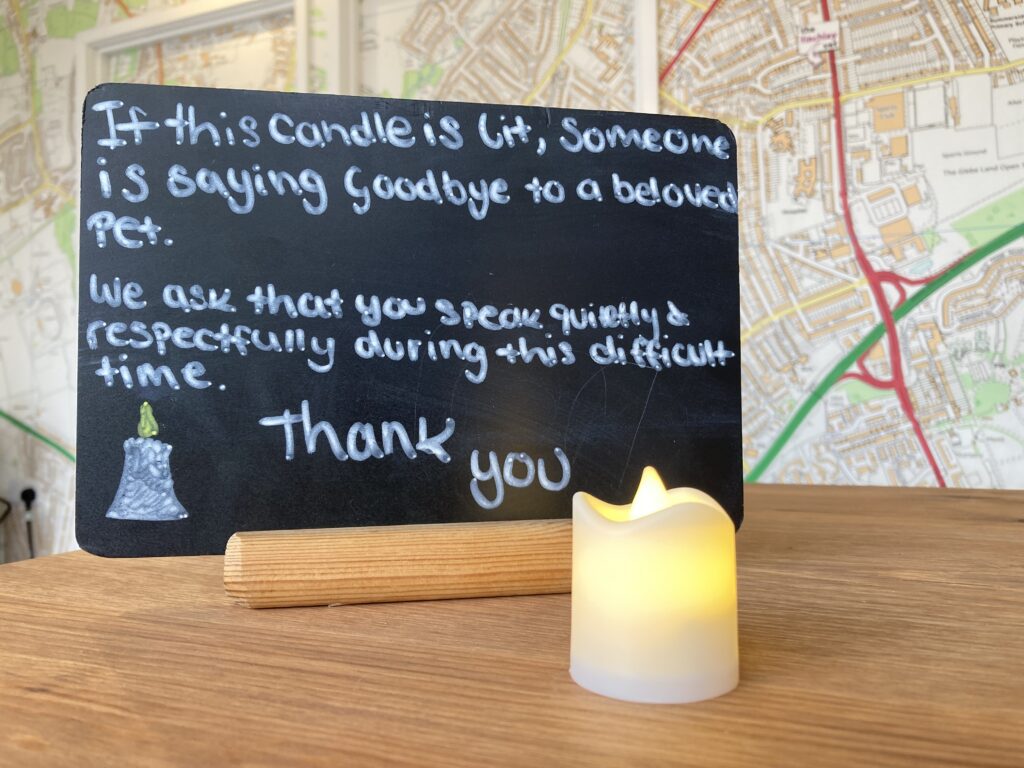 If this candle is lit, someone
is saying goodbye to a beloved
pet.
We ask that you speak quietly &
respectfully during this difficult
time.
Thank
you
the
finchley
vet
Sports Ground